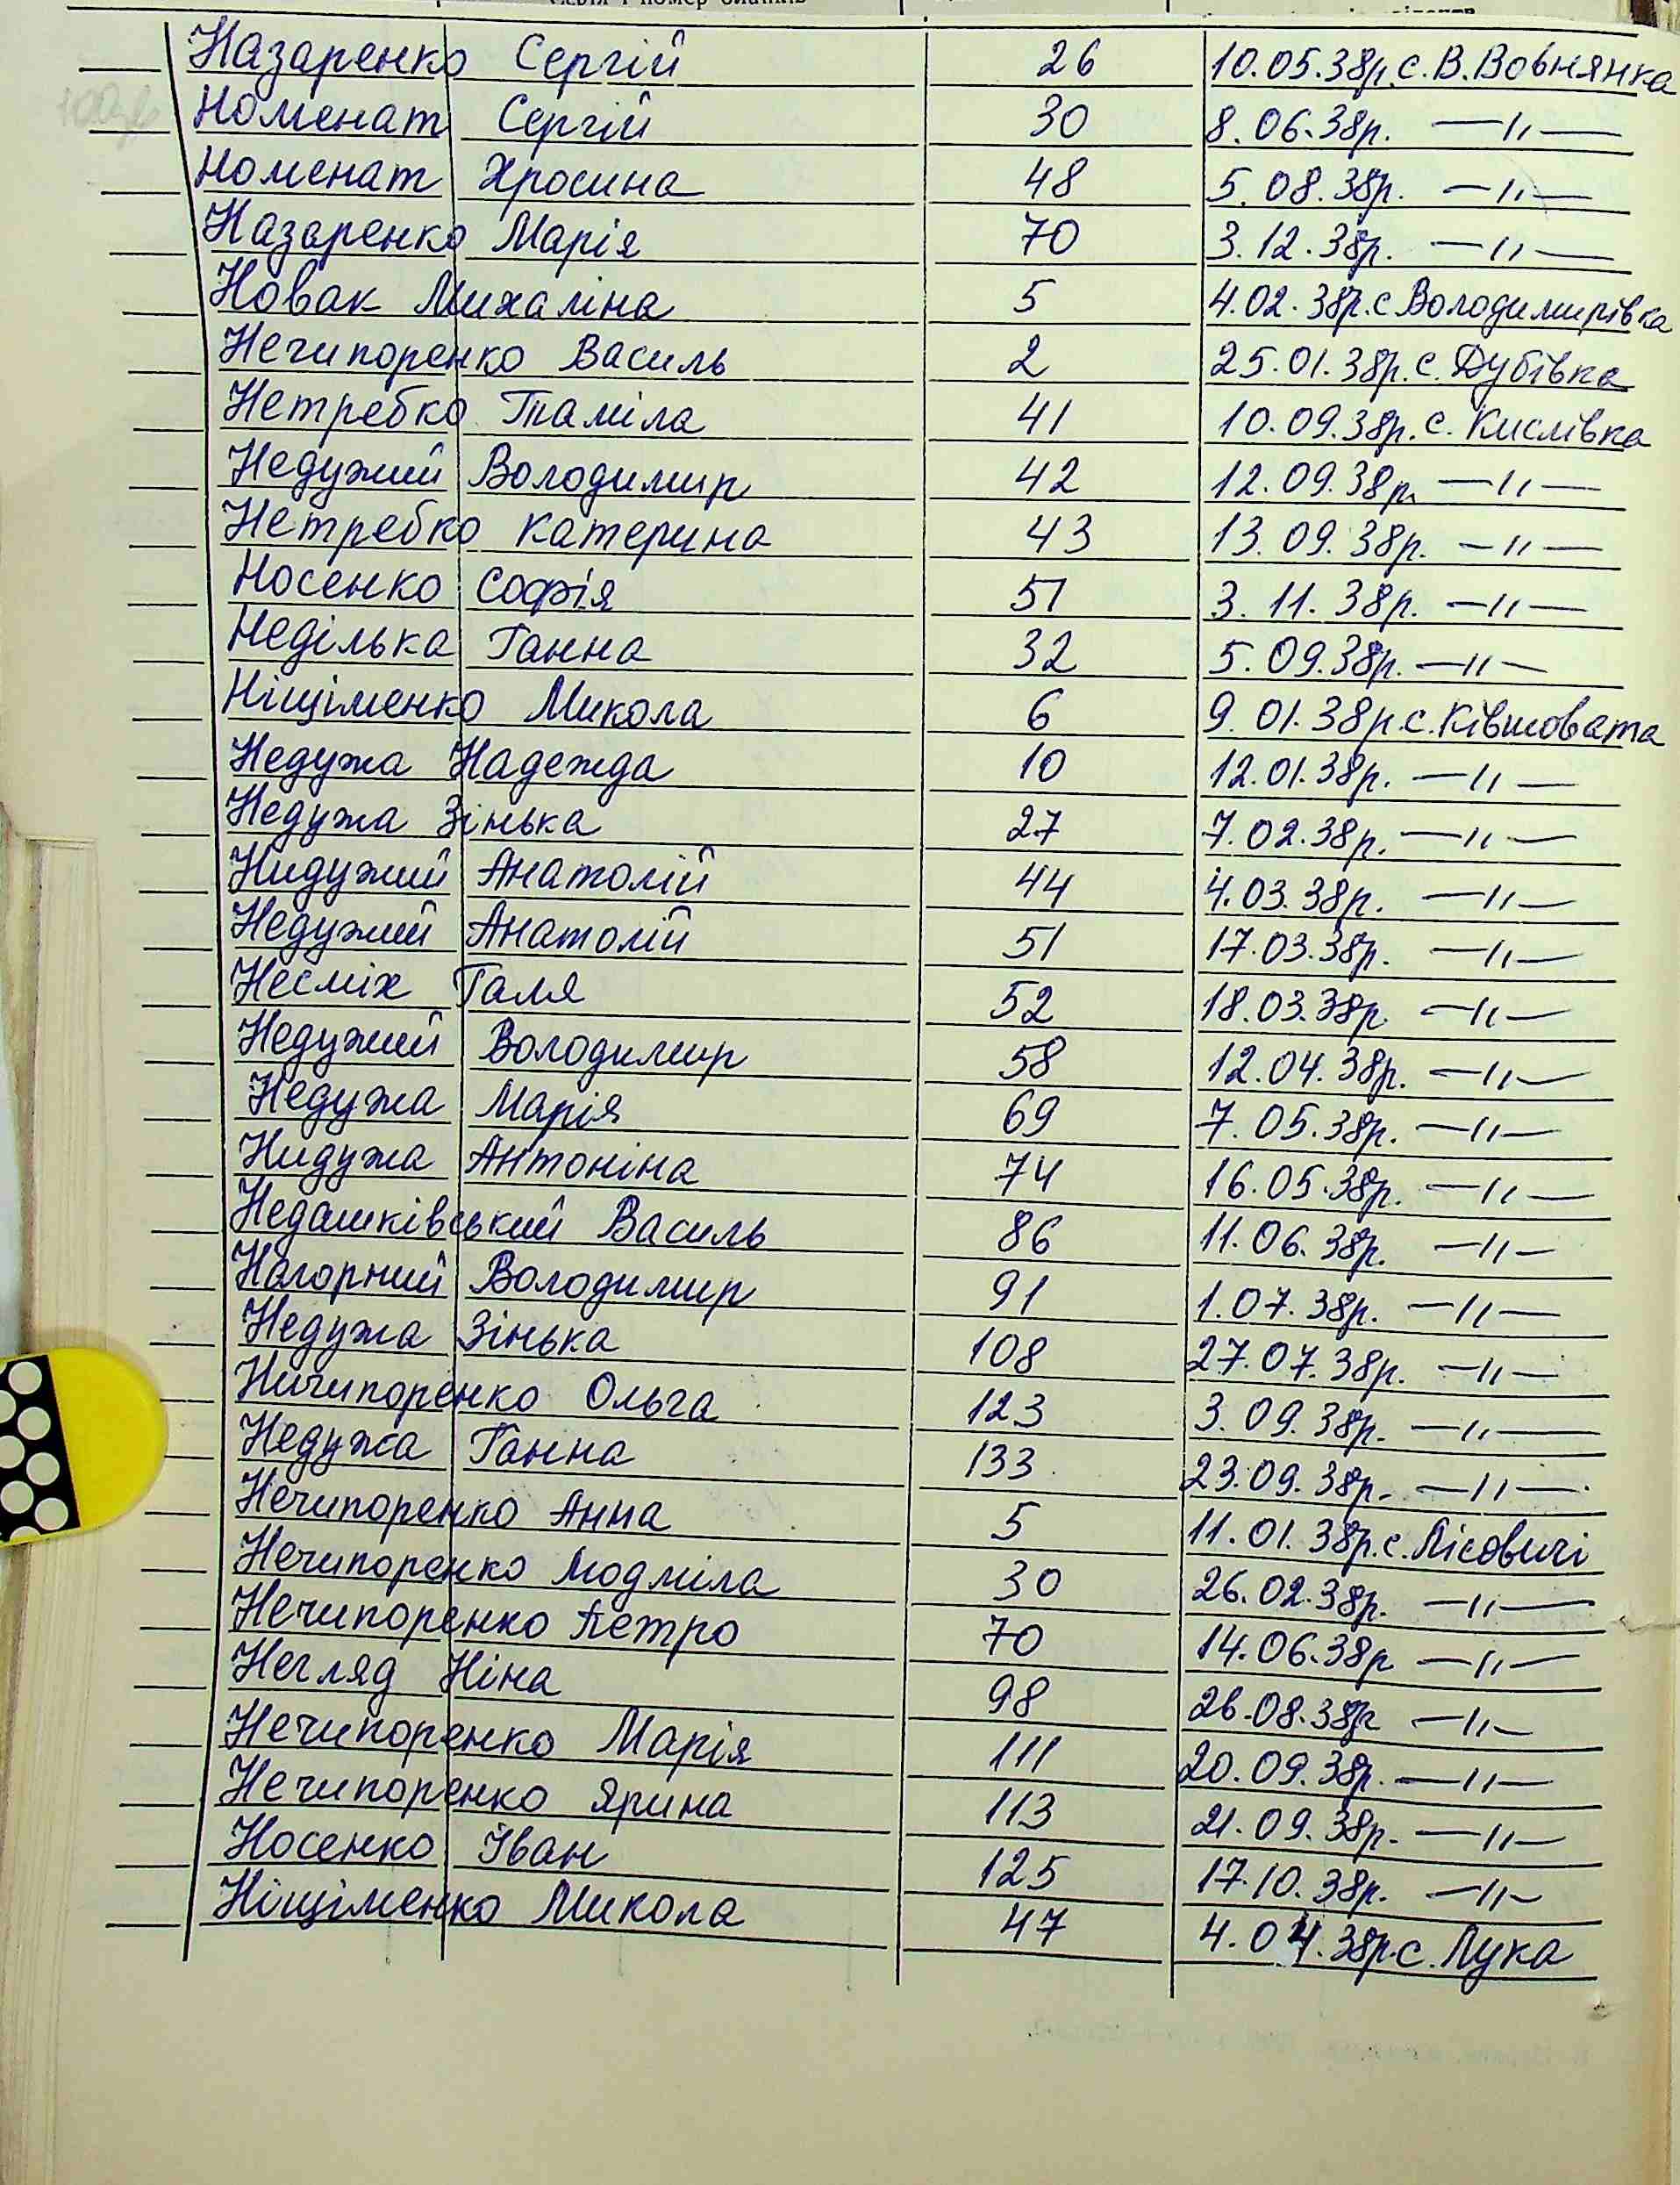 Назаренко Сергій 26 10.05.38р. с. В. Вовнянка
Номенат Сергій 30 8.06.38р. —"—
Номенат Хросина 48 5.08.38р. —"—
Назаренко Марія 70 3.12.38р. —"—
Новак Михаліна 5 4.02.38р. с Володимирівка
Нечипоренко Василь 2 25.01.38р. с. Дубівка
Нетребко Таміла 41 10.09.38р. с. Кислівка
Недужий Володимир 42 12.09.38р. —"—
Нетребко Катерина 43 13.09.38р. —"—
Носенко Софія 51 3.11.38р. —"—
Неділька Ганна 32 5.09.38р. —"—
Ніщіменко Микола 6 9.01.38р. с. Ківшовата
Недужа Надежда 10 12.01.38р. —"—
Недужа Зінька 27 7.02.38р. —"—
Нидужий Анатолій 44 4.03.38р. —"—
Недужий Анатолій 51 17.03.38р. —"—
Несміх Галя 52 18.03.38р. —"—
Недужий Володимир 58 12.04.38р. —"—
Недужа Марія 69 7.05.38р. —"—
Нидужа Антоніна 74 16.05.38р. —"—
Недашківський Василь 86 11.06.38р. —"—
Нагорний Володимир 91 1.07.38р. —"—
Недужа Зінька 108 27.07.38р. —"—
Ничипоренко Ольга 123 3.09.38р. —"—
Недужа Ганна 133 23.09.38р. —"—
Нечипоренко Анна 5 11.01.38р. с. Лісовичі
Нечипоренко Людміла 30 26.02.38р. —"—
Нечипоренко Петро 70 14.06.38р —"—
Негляд Ніна 98 26.08.38р —"—
Нечипоренко Марія 111 20.09.38р. —"—
Нечипоренко Ярина 113 21.09.38р. —"—
Носенко Іван 125 17.10.38р. —"—
Ніщіменко Микола 47 4.04.38р. с. Лука